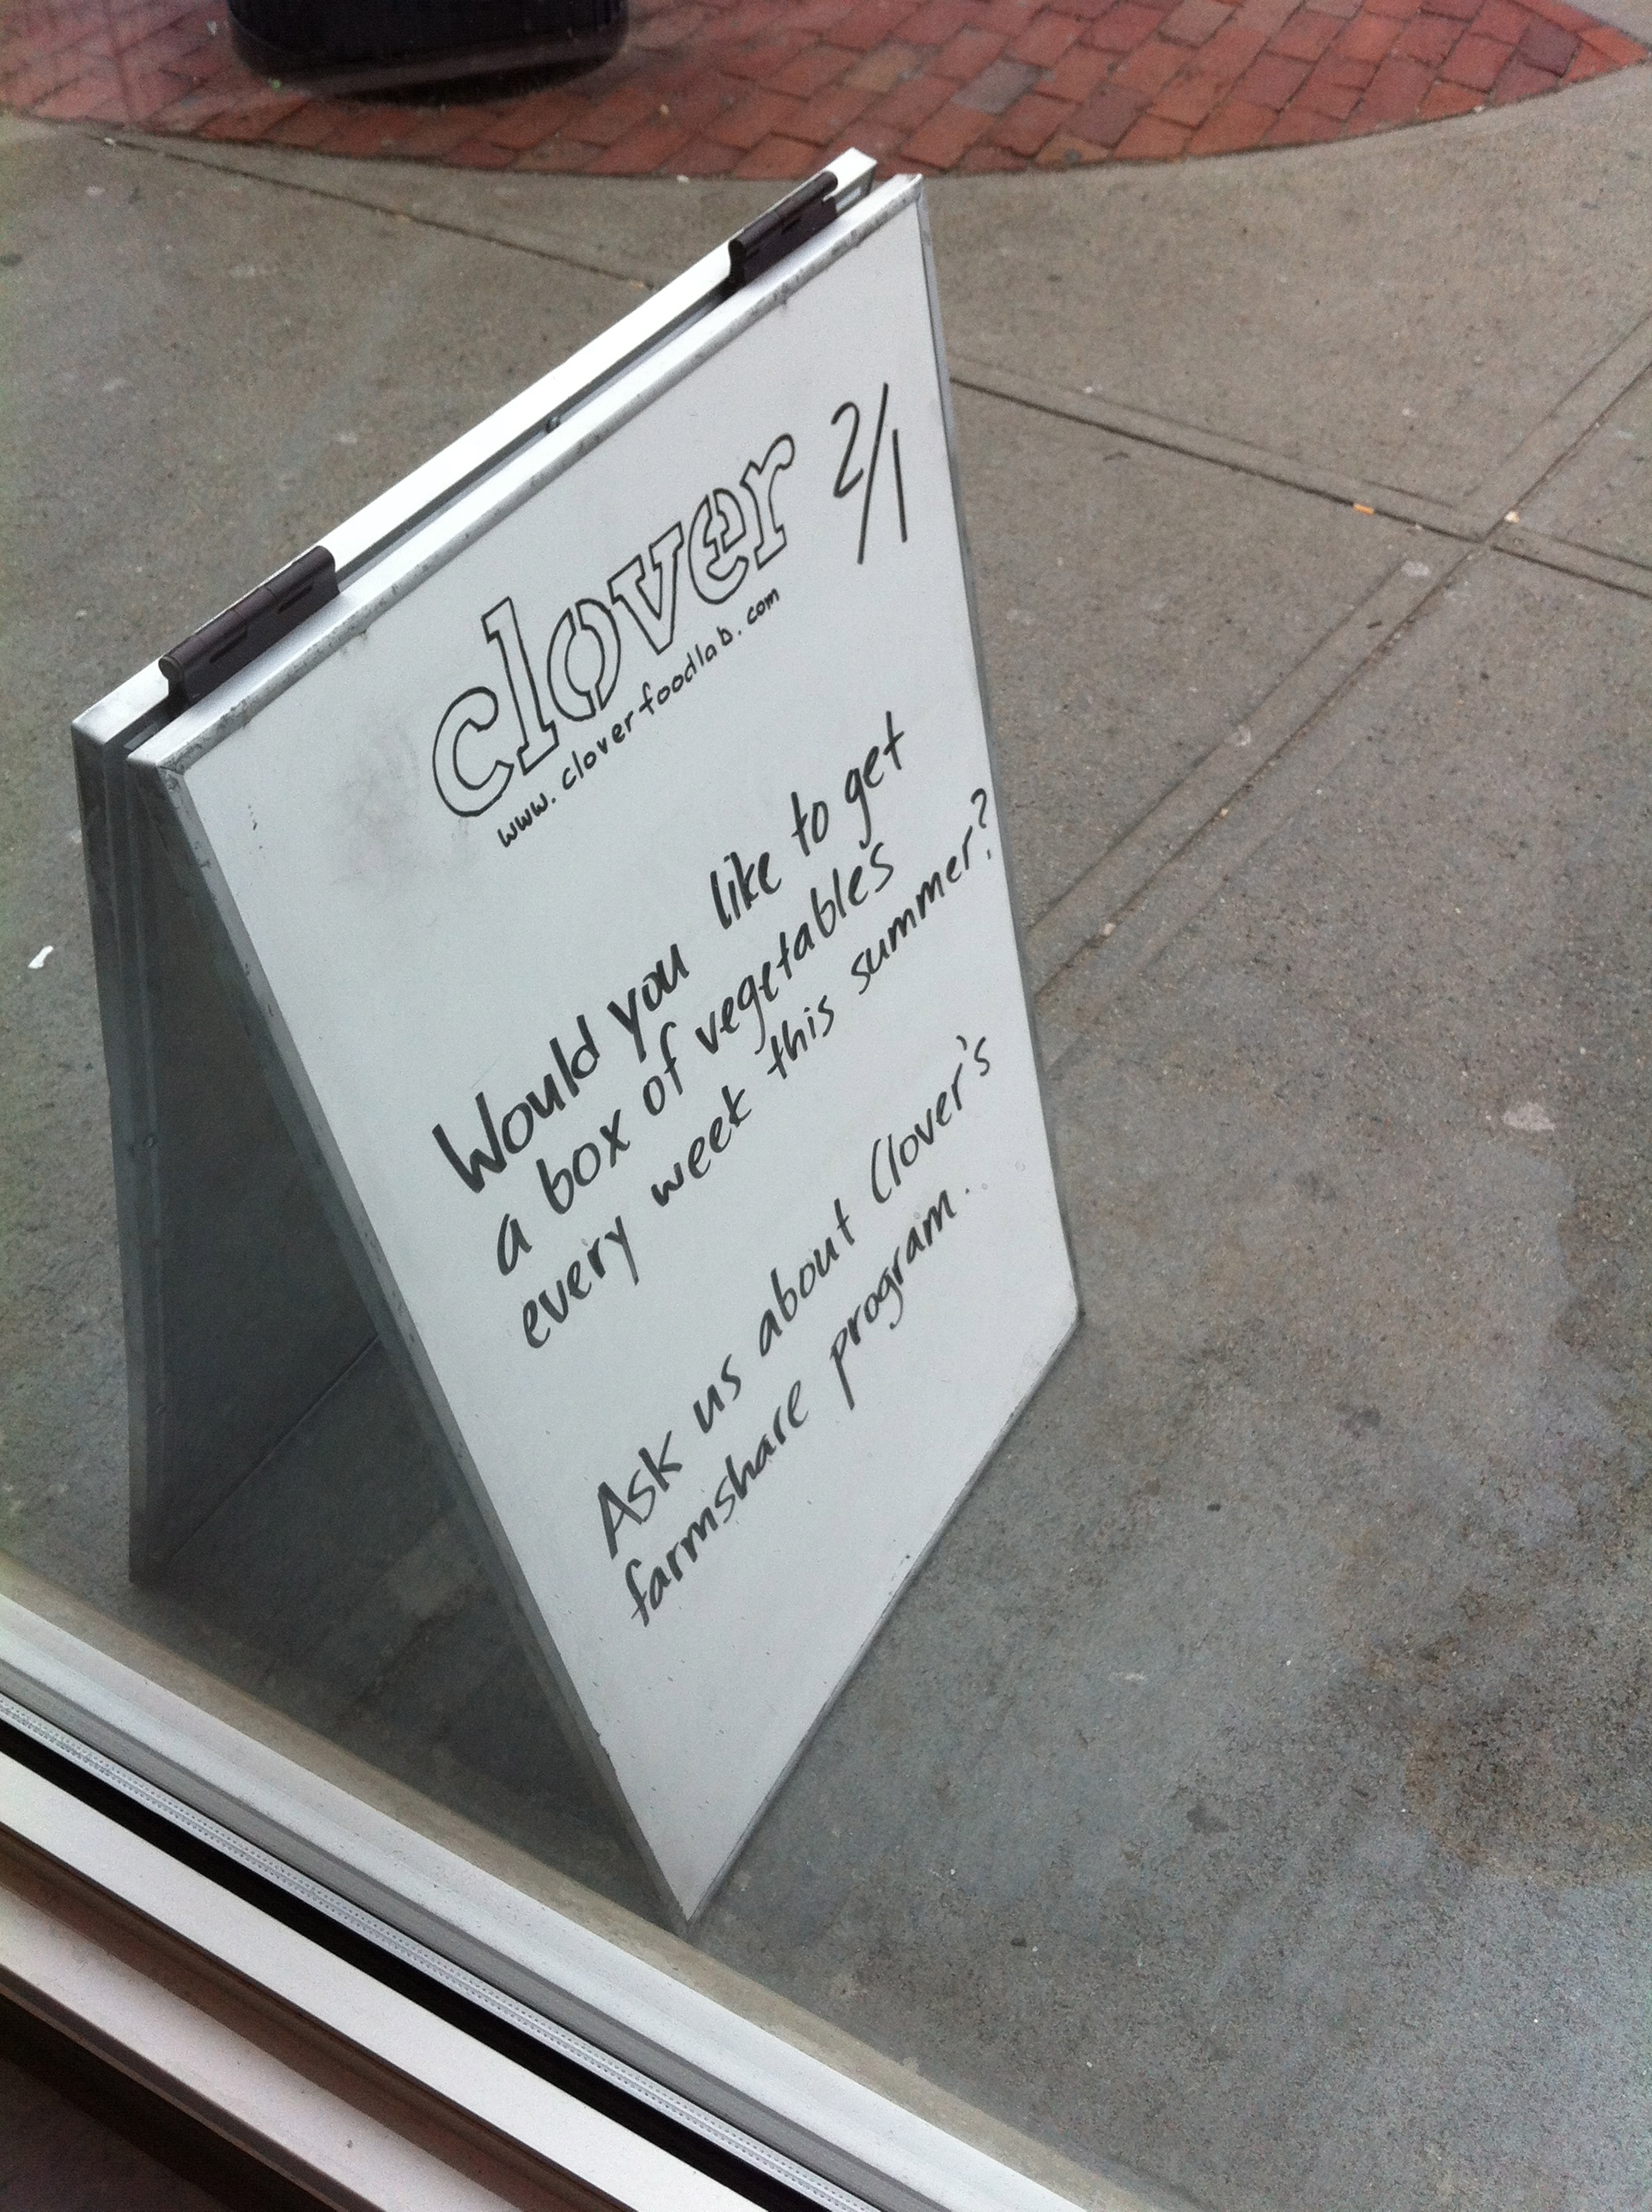 clover 2/1
www.cloverfoodlab.com
Would you like to get
a box of vegetables
every week this summer?
Ask us about Clover's
farmshare program..